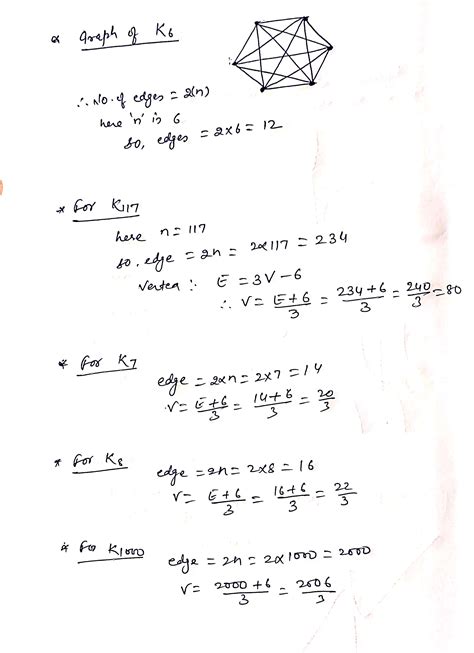 * Graph of K6
∴ No. of edges = 2(n)
here 'n' is 6
so, edges = 2×6 = 12
* For K117
here n = 117
so, edge = 2n = 2×117 = 234
Vertea : E = 3V - 6
∴ V = E+6/3 = 234+6/3 = 240/3 = 80
* For K7
edge = 2×n = 2×7 = 14
V = E+6/3 = 14+6/3 = 20/3
* For K8
edge = 2n = 2×8 = 16
V = E+6/3 = 16+6/3 = 22/3
* For K1000
edge = 2n = 2×1000 = 2000
V = 2000+6/3 = 2006/3